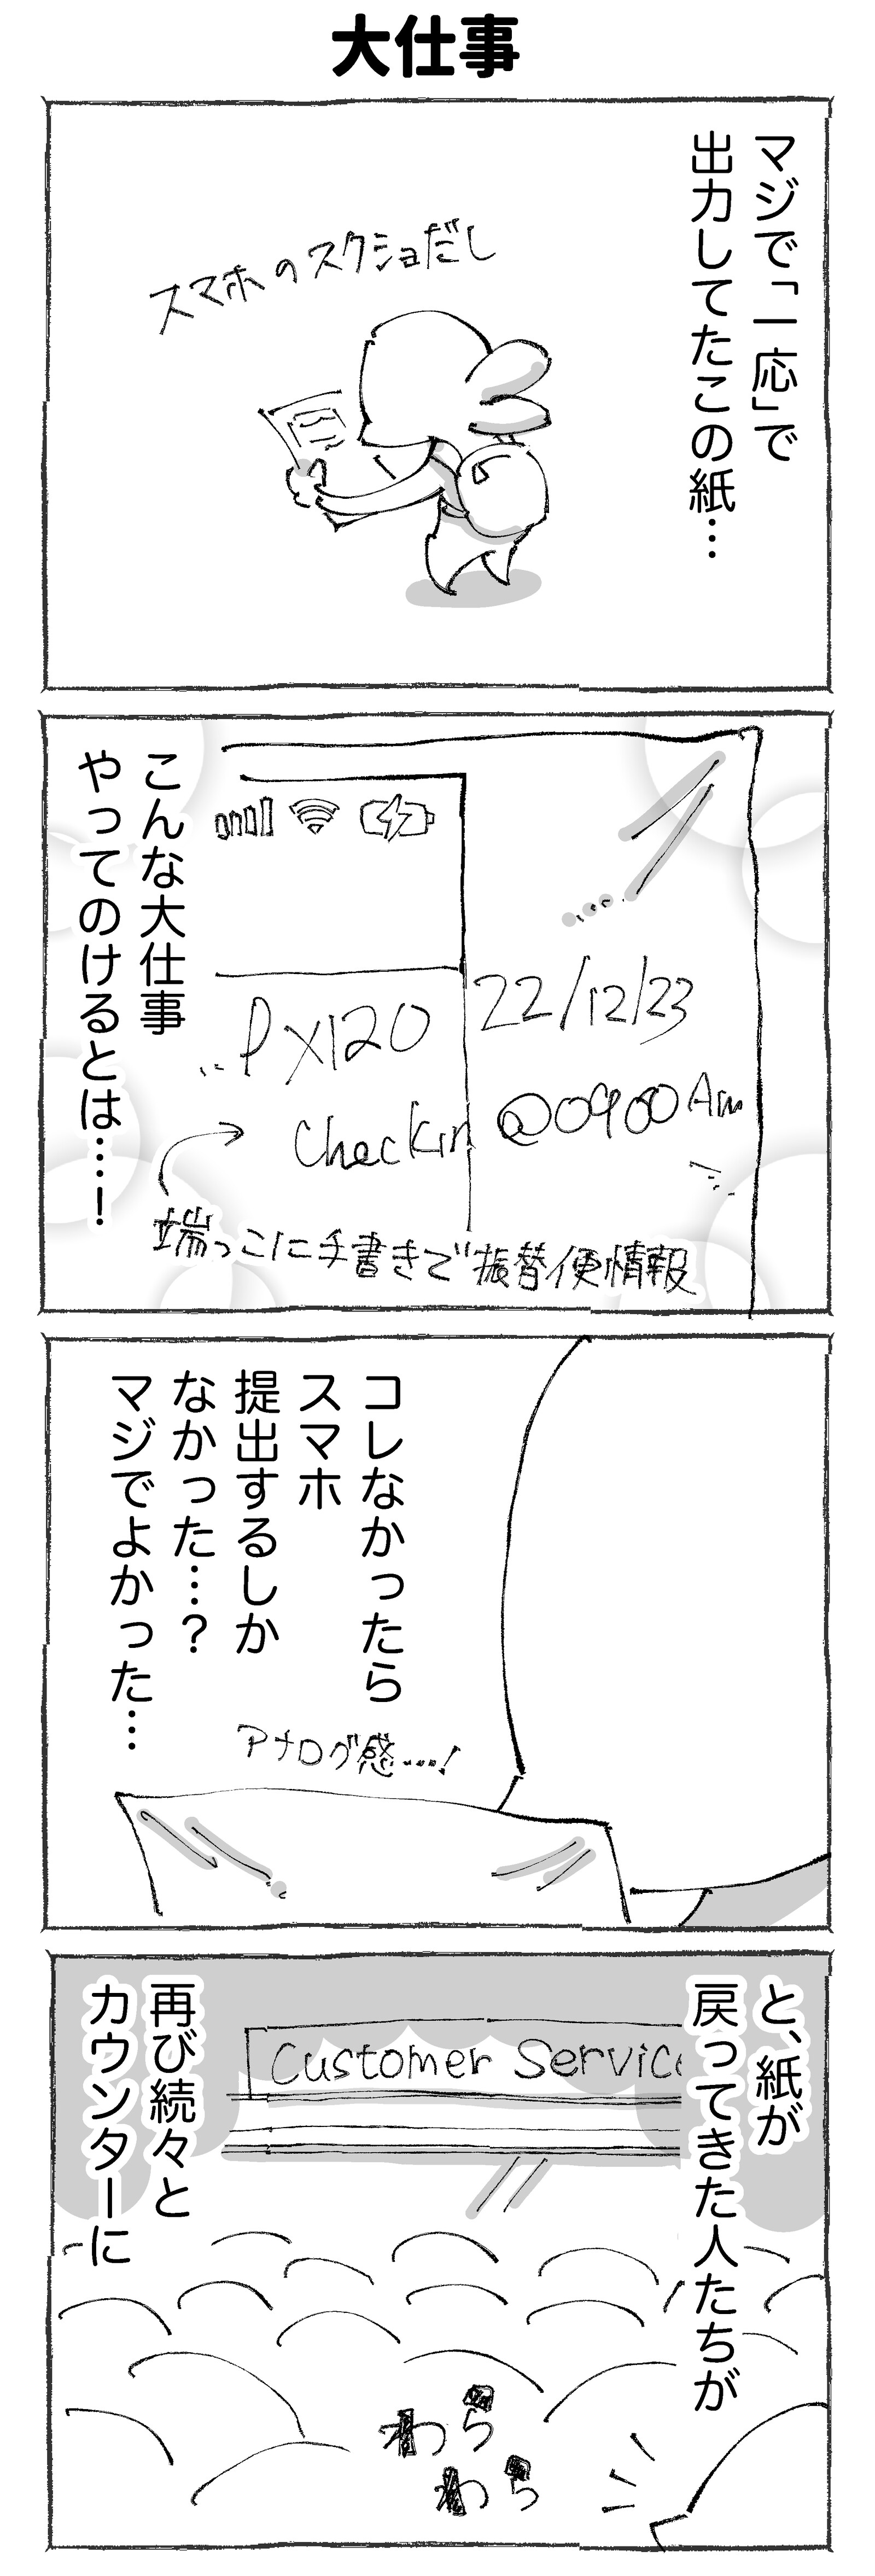 大仕事
マジで「一応」で
出力してたこの紙…
スマホのスクショだし
22/12/23
PX120
Checkin @0900Am
端っこに手書きで振替便情報
こんな大仕事
やってのけるとは…！
コレなかったら
スマホ
提出するしか
なかった…？
マジでよかった…
アナログ感…！
と、紙が
戻ってきた人たちが
Customer Service
再び続々と
カウンターに
わら
わら